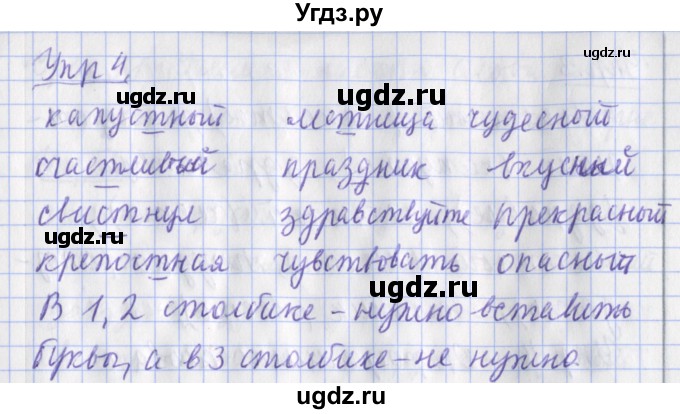 Угдз.ру
ugdz.ru ugdz.ru
Упр 4.
ugdz.ru
капустный лестница чудесный
ugdz.ru
счастливый праздник вкусный
свистнул здравствуйте прекрасный
ugdz.ru ugdz.ru
крепостная чувствовать опасный
ugdz.ru
В 1, 2 столбике - нужно вставить
буквы, а в 3 столбике - не нужно.
ugdz.ru
ugdz.ru